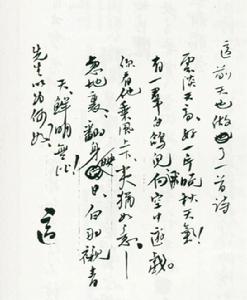 適前天也做了一首詩
雲淡天高，好一片晚秋天氣！
有一羣白鴿兒向空中遊戲。
你看他乘風上下夷猶如意—
忽地裏，翻身映日，白羽襯青
天，鮮明無比！
先生以為何如？
適